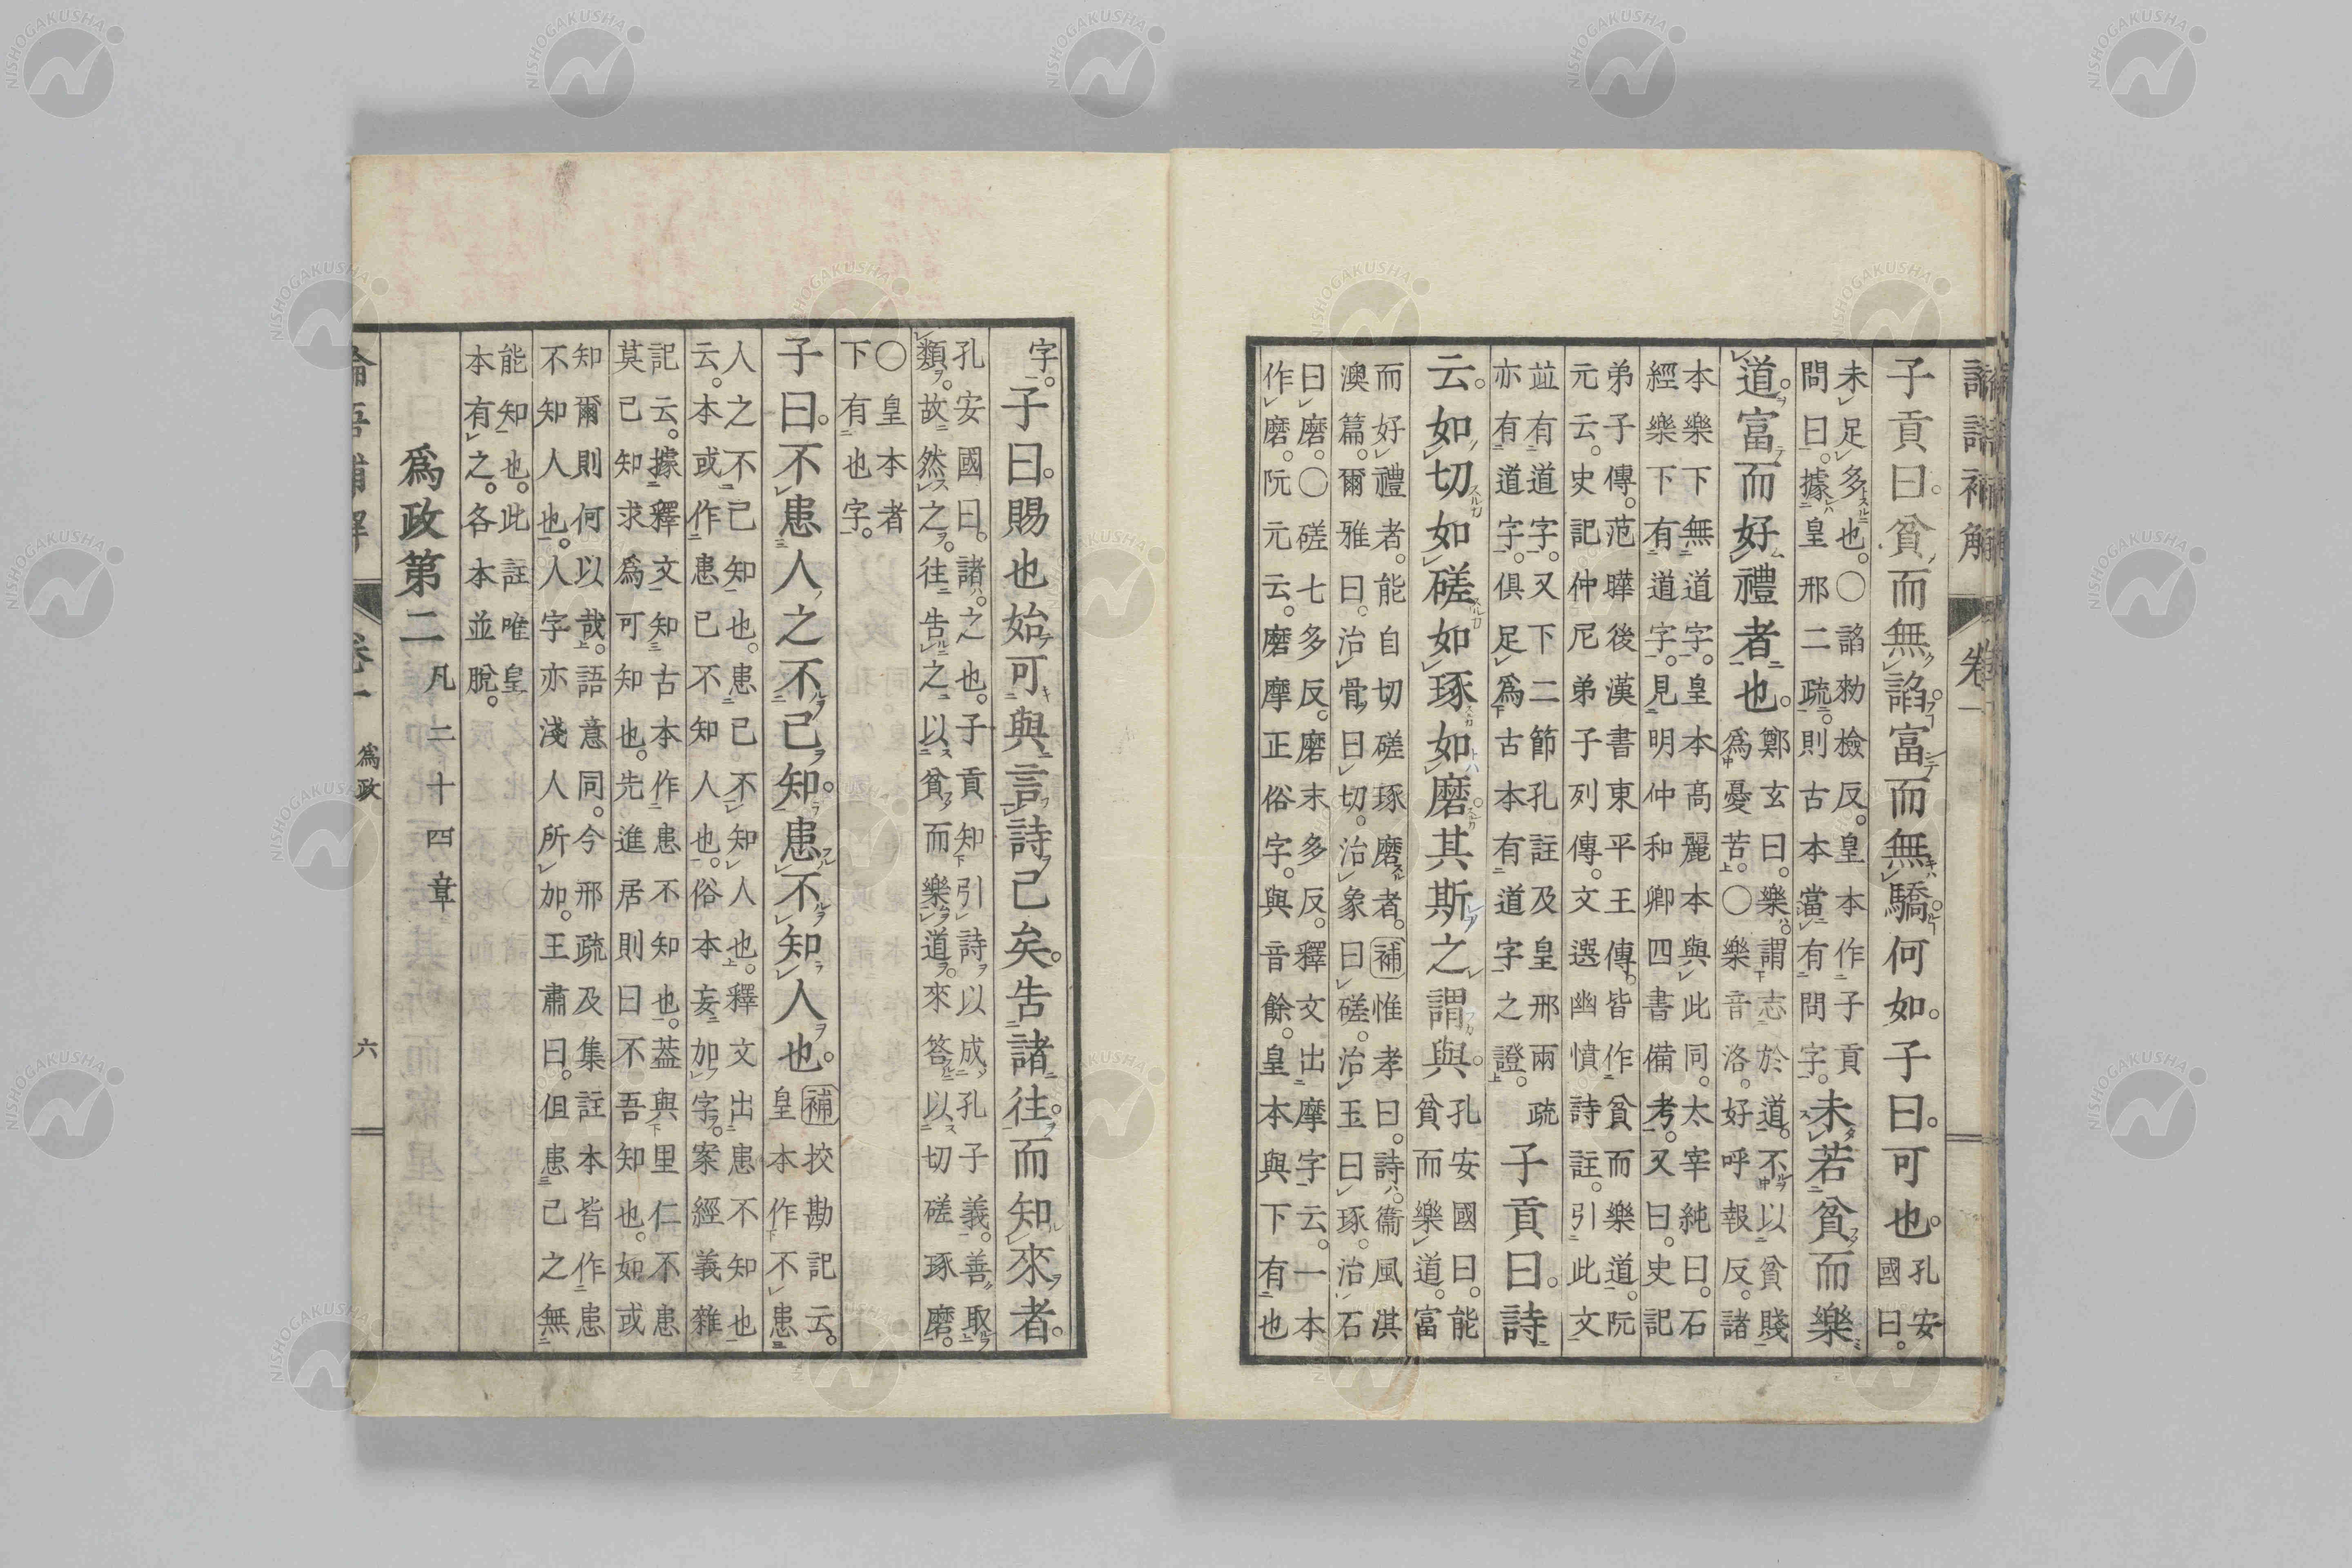 子貢曰。貧而無諂。富而無驕何如。子曰。可也。孔安
國曰。
未足多也。〇諂勑檢反。皇本作子貢
問曰。據皇邢二疏。則古本當有問字。未若貧而樂
道。富而好禮者也。鄭玄曰。樂。謂志於道。不以貧賤
爲憂苦。〇樂音洛。好呼報反。諸
本樂下無道字。皇本髙麗本與此同。太宰純曰。石
經樂下有道字。見明仲和卿四書備考。又曰。史記
弟子傳。范曄後漢書東平王傳。皆作貧而樂道。阮
元云。史記仲尼弟子列傳。文選幽憤詩註。引此文
並有道字。又下二節孔註及皇邢兩疏
亦有道字。俱足爲古本有道字之證。子貢曰。詩
云。如切如磋如琢如磨其斯之謂與。孔安國曰。能
貧而樂道。富
而好禮者。能自切磋琢磨者。補惟孝曰。詩。衞風淇
澳篇。爾雅曰。治骨曰切。治象曰磋。治玉曰琢。治石
曰磨。〇磋七多反。磨末多反。釋文出摩字云。一本
作磨。阮元云。磨摩正俗字。與音餘。皇本與下有也
字。子曰。賜也始可與言詩已矣。告諸往。而知來者。
孔安國曰。諸。之也。子貢知引詩以成孔子義。善取
類。故然之。往告之以貧而樂道。來答以切磋琢磨。
〇皇本者
下有也字。
子曰。不患人之不己知。患不知人也。補挍勘記云。
皇本作不患
人之不己知也。患己不知人也。釋文出患不知也
云。本或作患己不知人也。俗本妄加字。案經義雜
記云。據釋文知古本作患不知也。葢與里仁不患
莫己知求爲可知也。先進居則曰不吾知也。如或
知爾則何以哉。語意同。今邢疏及集註本皆作患
不知人也。人字亦淺人所加。王肅曰。但患己之無
能知也。此註唯皇
本有之。各本並脫。
爲政第二凡二十四章
爲政
六